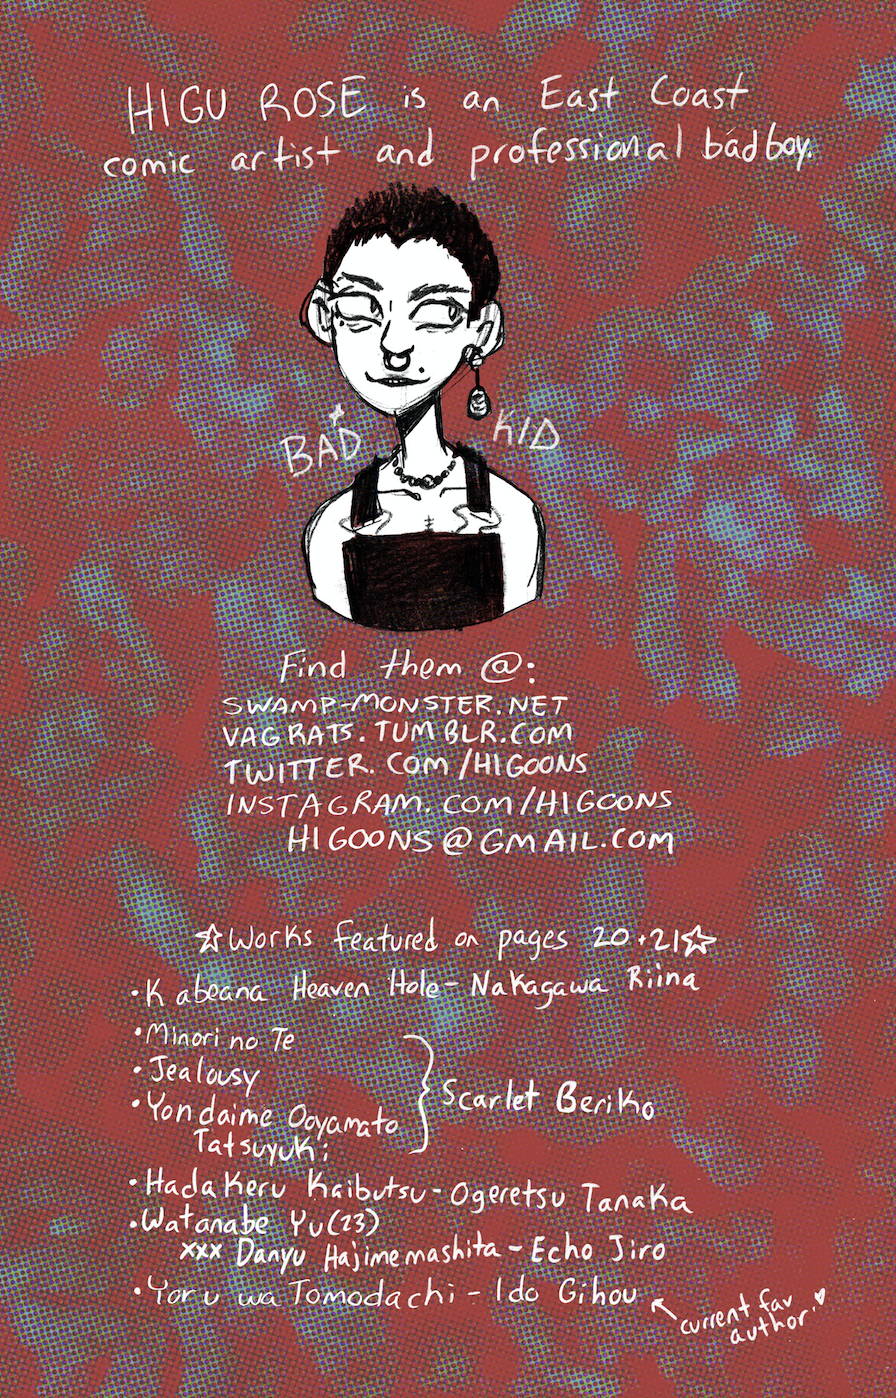 HIGU ROSE is an East Coast
comic artist and professional badboy.
BAD KID
Find them @:
SWAMP-MONSTER.NET
VAGRATS.TUMBLR.COM
TWITTER.COM/HIGOONS
INSTAGRAM.COM/HIGOONS
HIGOONS@GMAIL.COM
☆Works featured on pages 20+21☆
•Kabeana Heaven Hole-Nakagawa Riina
•Minori no Te
•Jealousy
•Yondaime Ooyamato
Tatsuyuki
} Scarlet Beriko
•Hadakeru Kaibutsu-Ogeretsu Tanaka
•Watanabe Yu(23)
xxx Danyu Hajimemashita-Echo Jiro
•Yoru wa Tomodachi-Ido Gihou
←current fav
author!♥